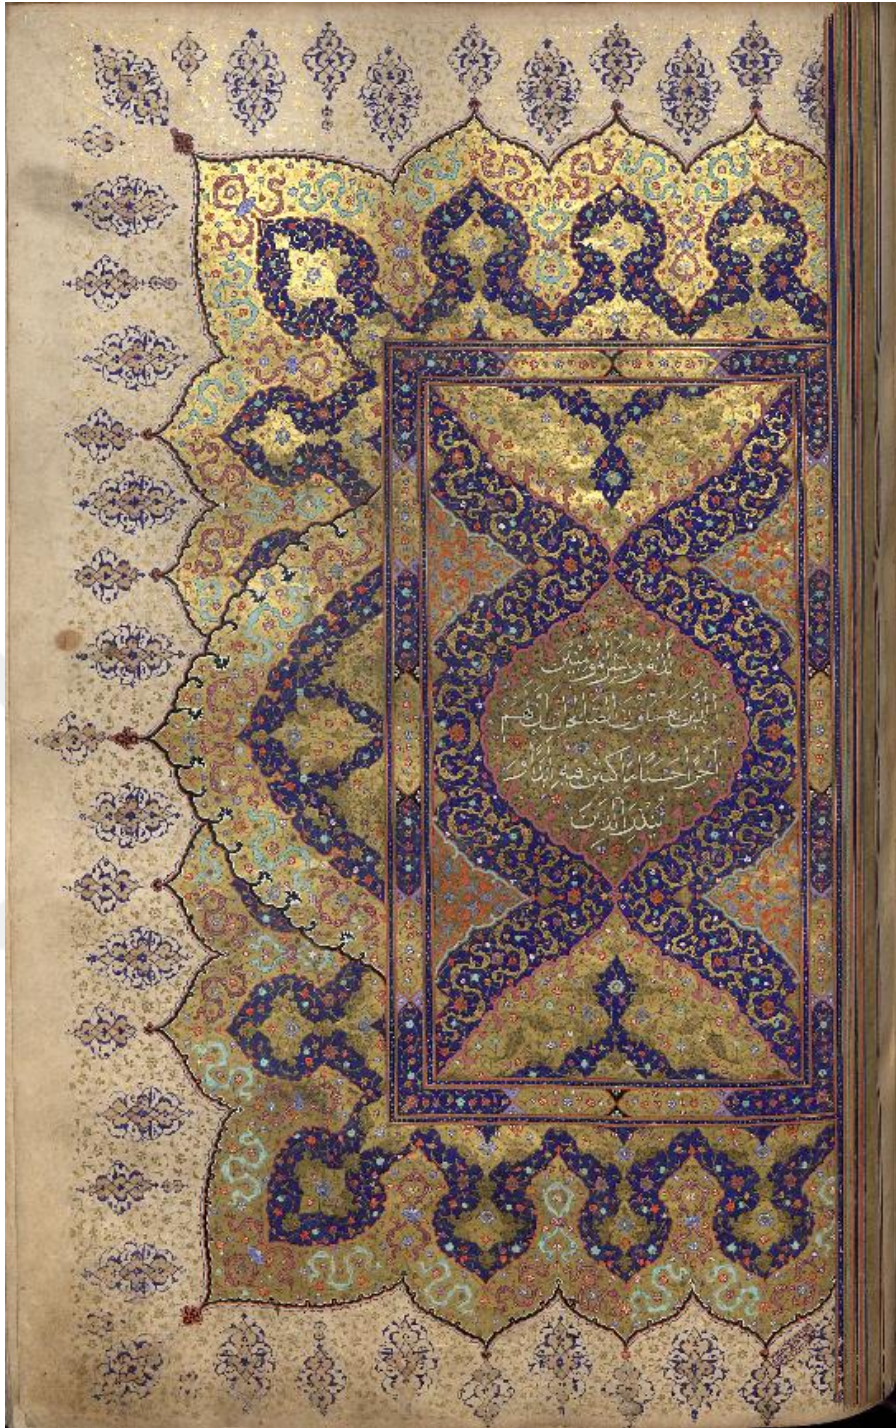 لَدُنْهُ وَيُبَشِّرَ الْمُؤْمِنِينَ
الَّذِينَ يَعْمَلُونَ الصَّالِحَاتِ أَنَّ لَهُمْ
أَجْرًا حَسَنًا مَاكِثِينَ فِيهِ أَبَدًا وَ
يُنْذِرَ الَّذِينَ